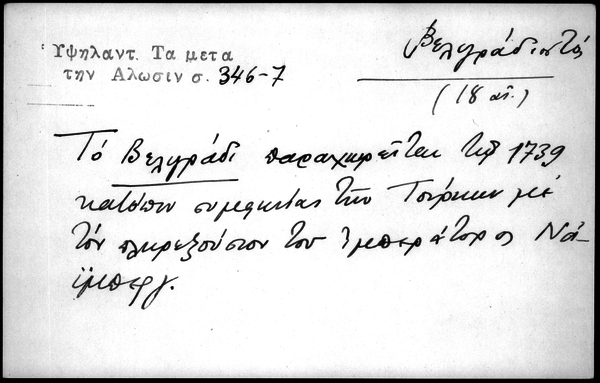 Ὑψηλαντ. Τα μετα
την Αλωσιν σ. 346-7
Βελιγράδι
(18 αἰ.)
Τό Βελιγράδι παραχωρεῖται τῷ 1739
κατόπιν συμφωνίας τῶν Τούρκων μέ
τόν πληρεξούσιον τοῦ Ἰμπεράτορος Νά-
ϊμπεργ.